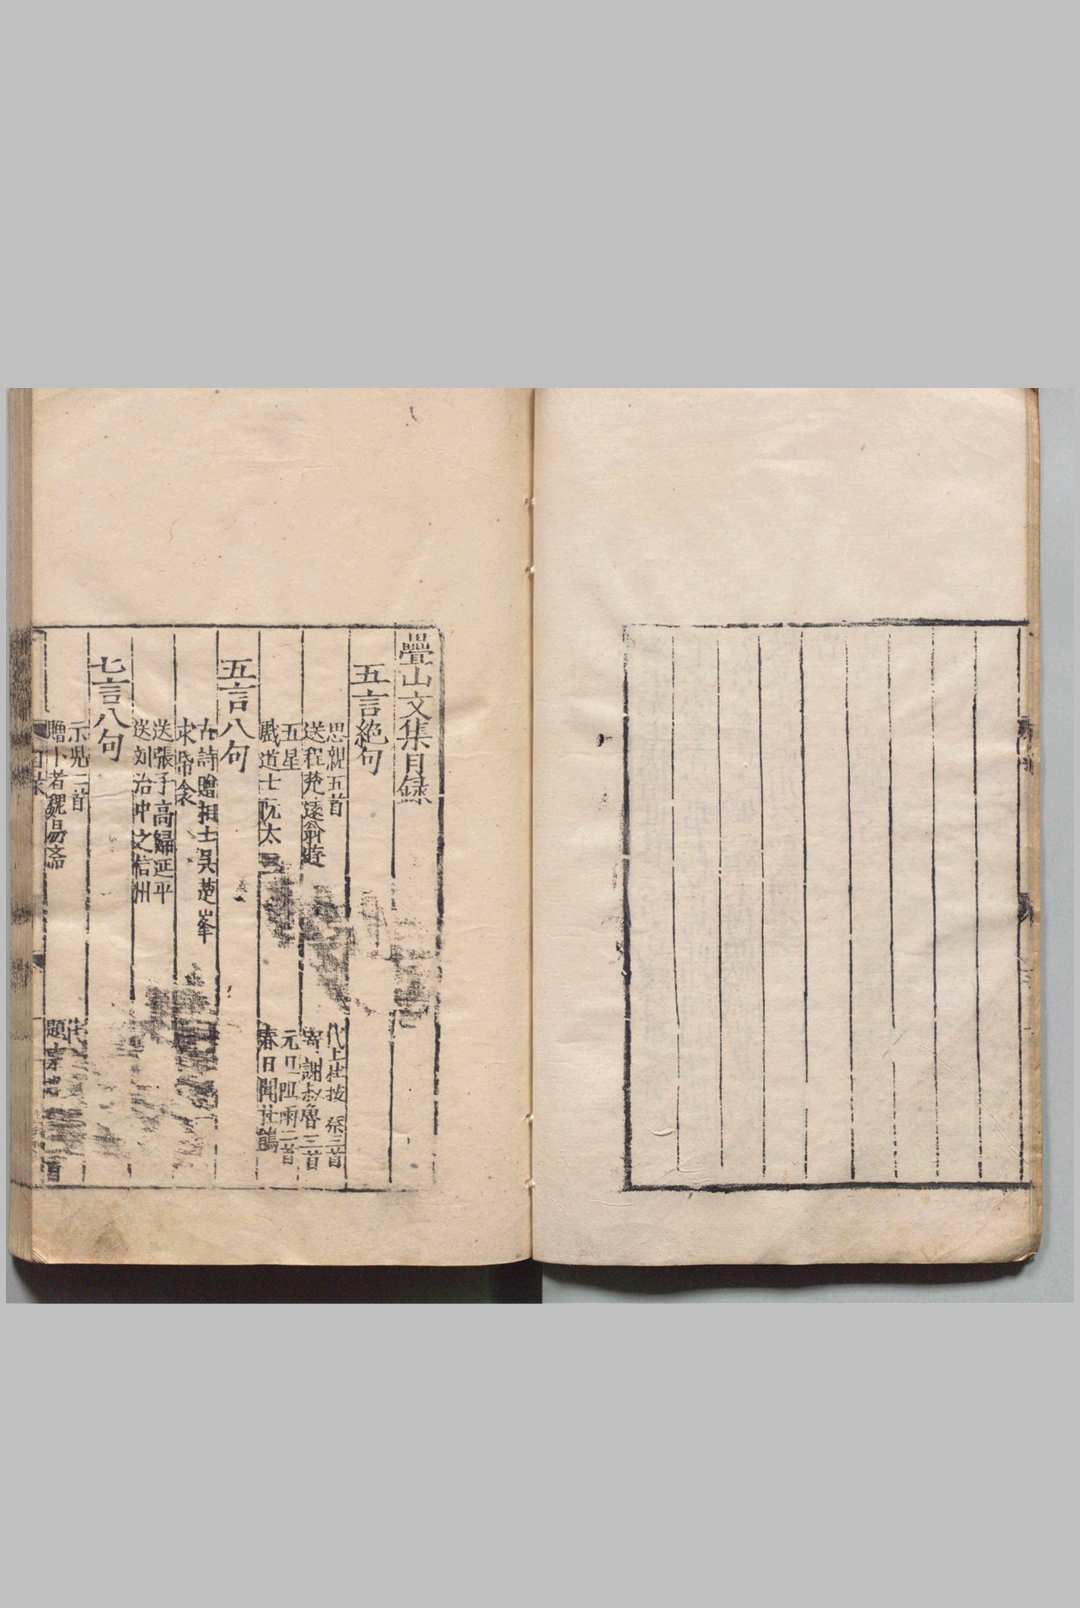 疊山文集目錄
五言絕句
思親五首
代上社按察三首
送程楚逺翁逰
寄謝叔魯三首
五星
元日阻雨二首
戲道士阮太
春日聞杜鵑
五言八句
古詩贈相士吳楚峯
求帝衾
送張子高歸延平
送刘治中之信州
七言八句
示児二首
贈卜者魏易斋